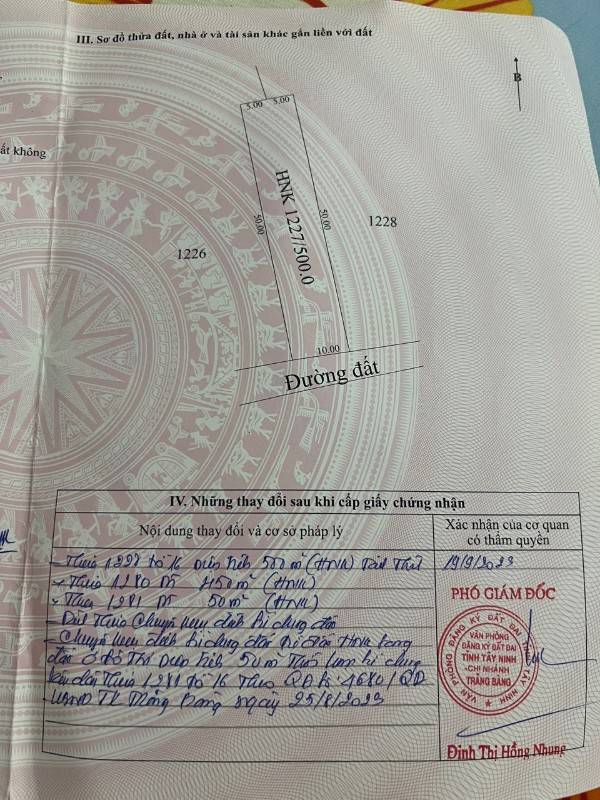 III. Sơ đồ thửa đất, nhà ở và tài sản khác gắn liền với đất
B
5.00 5.00
ất không
HNK 1227/500.0
50.00
50.00
1228
1226
10.00
Đường đất
IV. Những thay đổi sau khi cấp giấy chứng nhận
Nội dung thay đổi và cơ sở pháp lý
Xác nhận của cơ quan có thẩm quyền
- Thửa 1227 tờ 16 diện tích 500 m² (HNK)
19/9/2023
- Thửa 1280 DT 450 m² (HNK)
- Thửa 1281 DT 50 m² (HNK)
- Chuyển mục đích sử dụng đất từ đất HNK sang
đất ở đô thị diện tích 50 m²
Thửa 1281 tờ 16 Theo QĐ số: 4680/QĐ
UBND TX Trảng Bàng ngày 25/8/2023
PHÓ GIÁM ĐỐC
VĂN PHÒNG ĐĂNG KÝ ĐẤT ĐAI TỈNH TÂY NINH
VĂN PHÒNG
ĐĂNG KÝ ĐẤT ĐAI
TỈNH TÂY NINH
-CHI NHÁNH
TRẢNG BÀNG
Đinh Thị Hồng Nhung